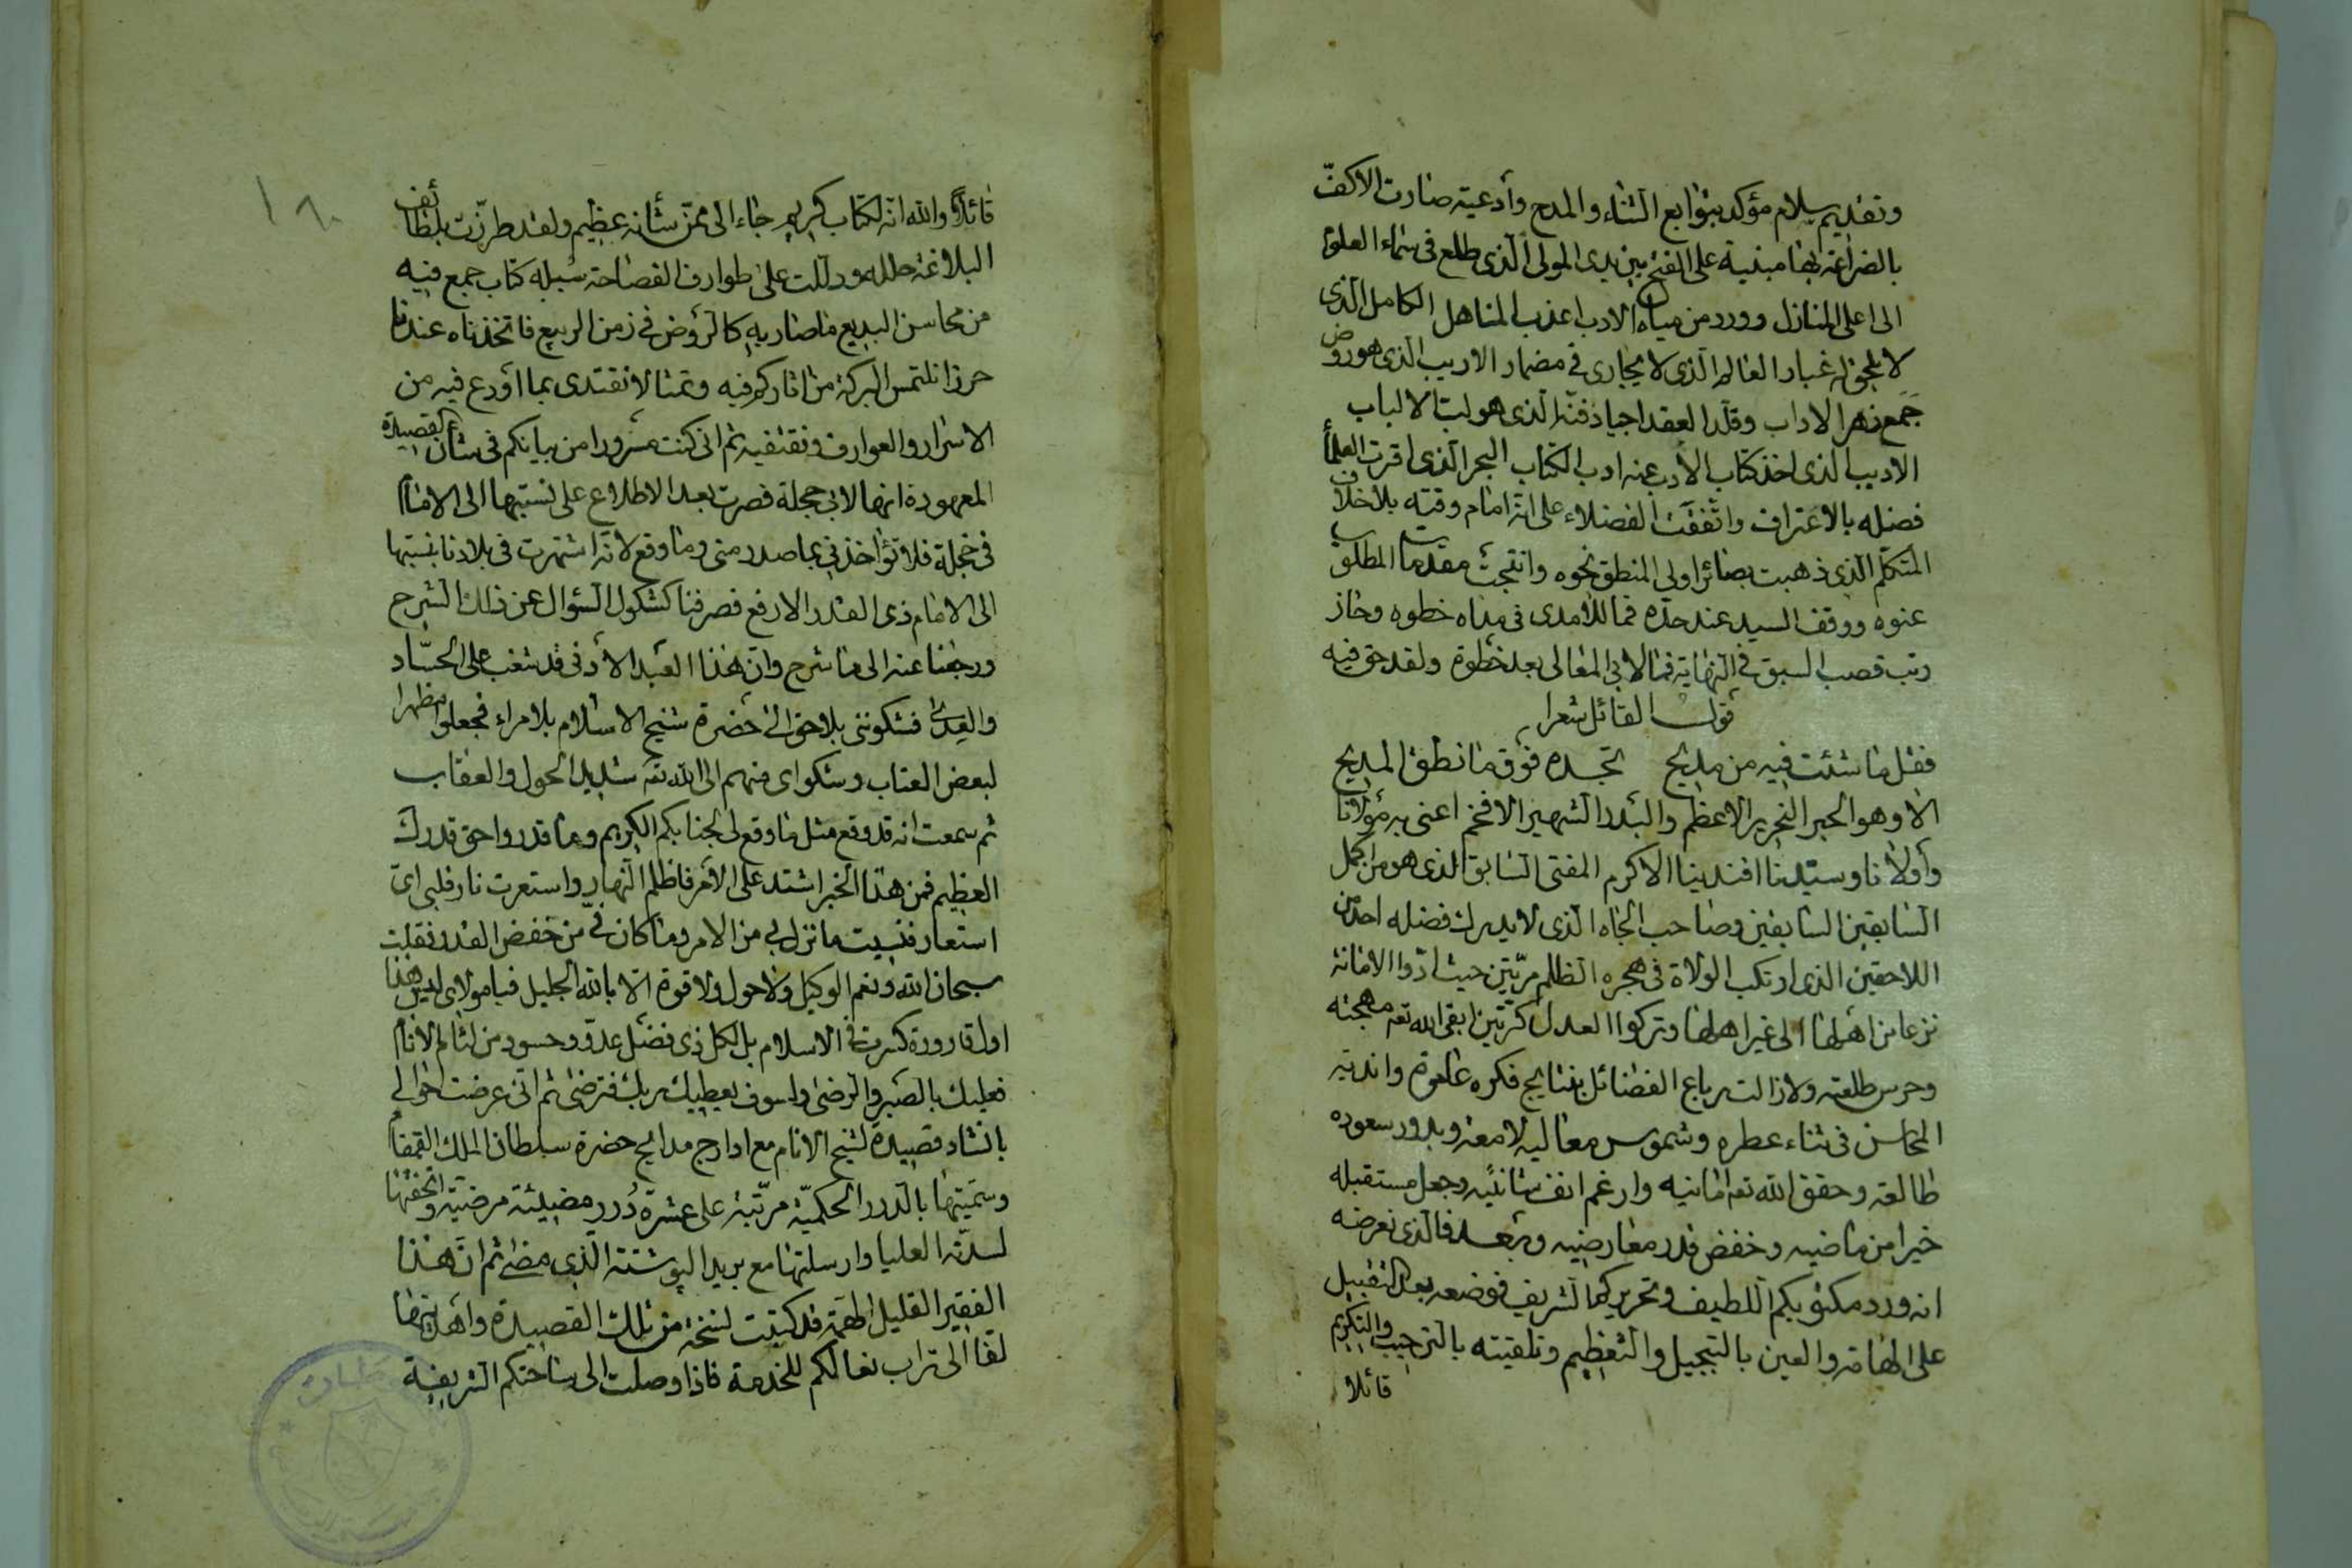 وتقديم سلام مؤكد بتوابع الثناء والمدح وأدعية صارت الاكفّ
بالضراعة لها مبنية على الفتح بين يدى المولى الذى طلع فى سماء العلوم
الى اعلى المنازل وورد من مياه الادب اعذب المناهل الكامل الذى
لا يلحق له غبار العالم الذى لا يجارى فى مضمار الاريب الذى هو روض
جمع زهر الاداب وقلد العقد اجياد فنه الذى هو لب الالباب
الاديب الذى اخذ كتاب الأدب عنه ادب الكتاب البحر الذى اقرت العلمأ
فضله بالاعتراف واتفقت الفضلاء على انه امام وقته بلا خلاف
المتكلم الذى ذهبت بصائر اولى المنطق نحوه وانتجت مقدمات المطلوب
عنوه ووقف السيد عند حده فما للآمدى فى مداه خطوه وحاز
رتب قصب السبق فى النهاية فما لابى المعالى بعد خطوة ولقد حق فيه
قول القائل شعرا
فقل ما شئت فيه من مديح تجده فوق ما نطق المديح
الا وهو الحبر النحرير الاعظم والبدر الشهير الافخم اعنى به مولانا
وأولانا وسيدنا افندينا الاكرم المفتى السابق الذى هو من اكمل
السابقين السابقين وصاحب الجاه الذى لا يدرك فضله احد من
اللاحقين الذى ارتكب الولاة فى هجره الظلم مرتين حيث ادوا الامانة
نزعا من اهلها الى غير اهلها وتركوا العدل كرتين ابقى الله تعه مهجته
وحرس طلعته ولا زالت رباع الفضائل بنتايج فكره عامرة واندية
المحاسن فى ثناء عطره وشموس معاليه لامعة وبدور سعوده
طالعة وحقق الله تعه امانيه وارغم انف شانئيه وجعل مستقبله
خيرا من ماضيه وخفض قدر معارضيه وبعد فالذى نعرضه
انه ورد مكتوبكم اللطيف وتحريركم الشريف فوضعه بعد التقبيل
على الهامة والعين بالتبجيل والتعظيم وتلقيته بالترحيب والتكريم
قائلا
١٨٠
قائلا والله انه لكتاب كريم جاء الى ممن شأنه عظيم ولقد طرزت بلطائف
البلاغة حلله ودللت على طوارف الفصاحة سبله كتاب جمع فيه
من محاسن البديع ما صار به كالروض فى زمن الربيع فاتخذناه عندنا
حرزا نلتمس البركة من اثاركم فيه وتمثالا نقتدى بما اودع فيه من
الاسرار والعوارف ونقتفيه ثم انى كنت مسرورا من بيانكم فى شأن القصيدة
المعهودة انها لابى حجلة فصرت بعد الاطلاع على نسبتها الى الامام
فى خجلة فلا تؤاخذنى بما صدر منى وما وقع لانه اشتهرت فى بلادنا بنسبتها
الى الامام ذى القدر الارفع فصرفنا كشكول السؤال عن ذلك الشرح
ورجعنا عنه الى ما شرح وان هذا العبد الأدنى قد شغب على الحساد
والعدى فشكونى بلا حق الى حضرة شيخ الاسلام بلا مراء فجعلو مظهرا
لبعض العتاب وشكواى منهم الى الله تعه شديد الحول والعقاب
ثم سمعت انه قد وقع مثل ما وقع لى لجنابكم الكريم وما قدروا حق قدرك
العظيم فمن هذا الخبر اشتد على الأمر فاظلم النهار واستعرت نار قلبى اى
استعار فنسيت ما نزل بى من الامر وما كان فى من خفض القدر فقلت
سبحان الله ونعم الوكيل ولا حول ولا قوة الا بالله الجليل فيا مولاى ليس هذا
اول قارورة كسرت فى الاسلام بل لكل ذى فضل عدو وحسود من لئام الأنام
فعليك بالصبر والرضى ولسوف يعطيك ربك فترضى ثم انى عرضت احوالى
بانشاد قصيدة لشيخ الانام مع ادراج مدايح حضرة سلطان الملك القمقام
وسميتها بالدرر الحكمية مرتبة على عشرة درر مضيئة مرضية واتحفتها
لسدته العليا وارسلتها مع بريد الپوشته الذى مضى ثم ان هذا
الفقير القليل الهمة قد كتبت نسخة من تلك القصيدة واهديتها
لفا الى تراب نعالكم للخدمة فاذا وصلت الى ساحتكم الشريفة